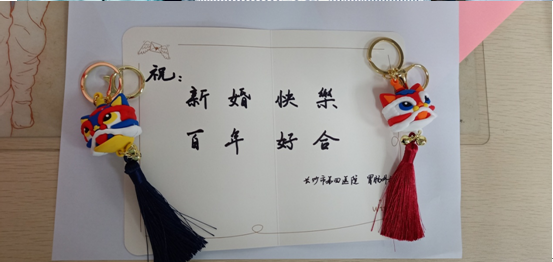 祝：
新婚快樂
百年好合
长沙市第四医院